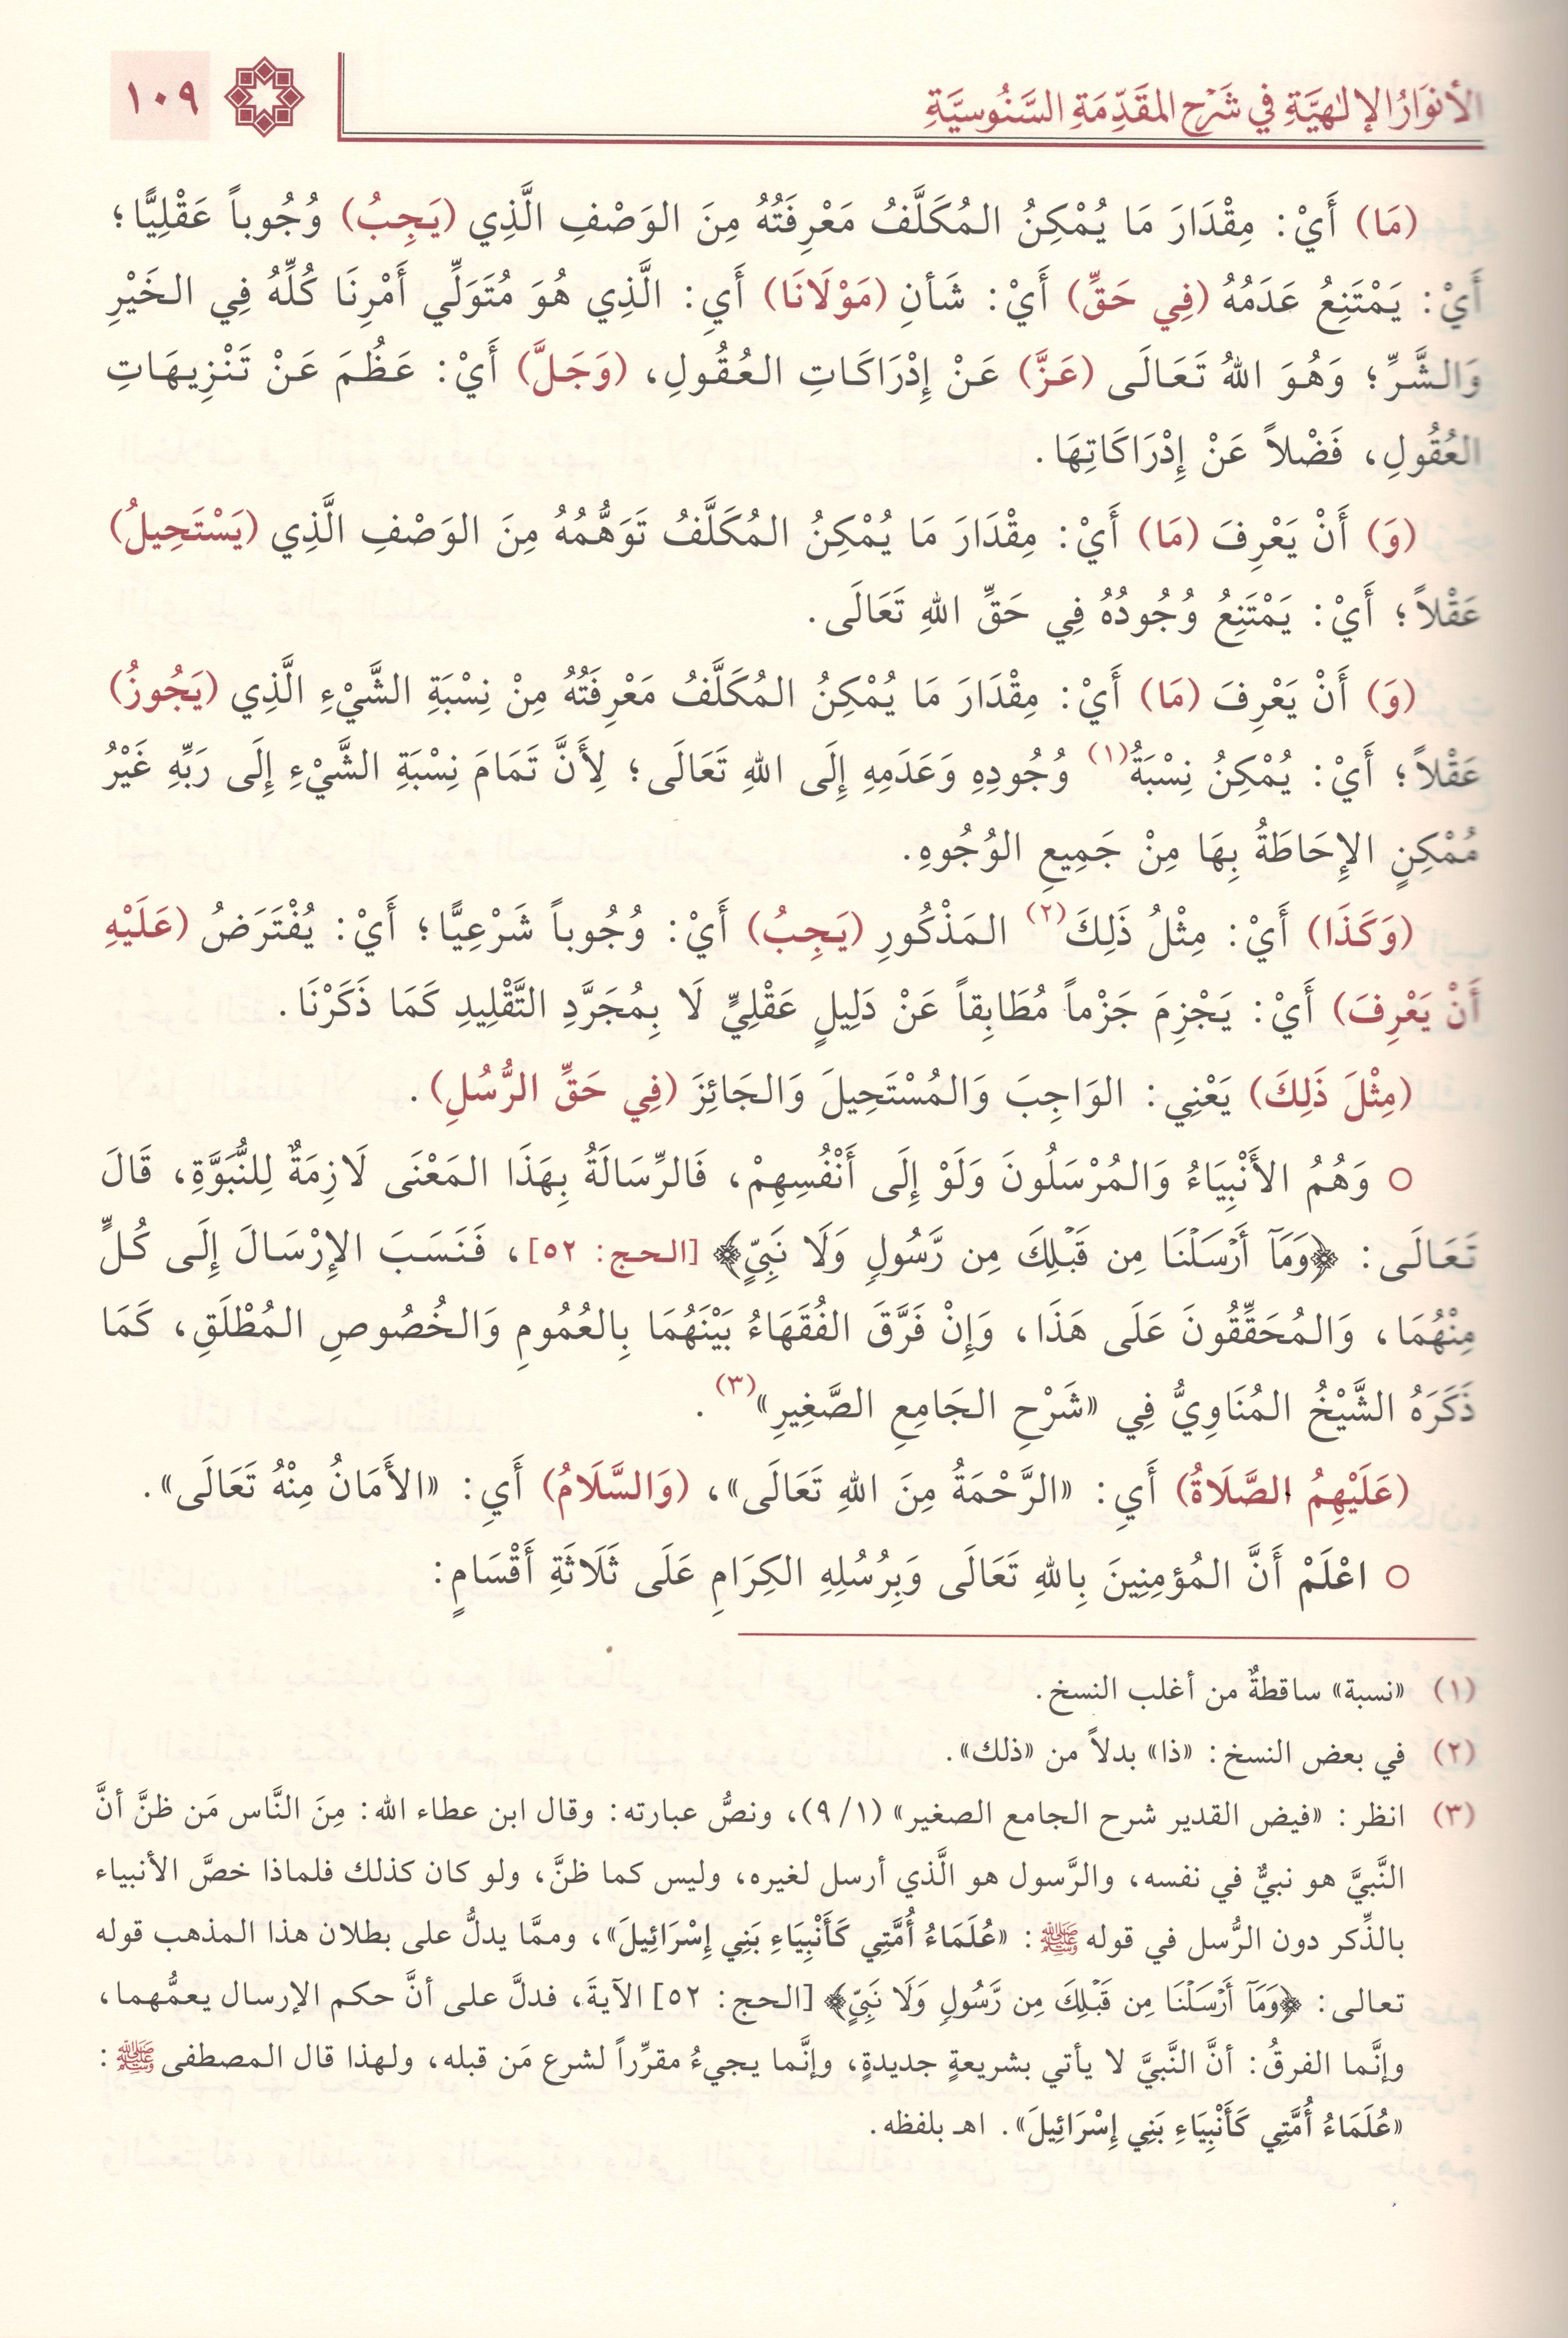 الأنوَارُ الإلٰهيَّةِ في شَرْح المقَدِّمَةِ السَّنُوسيَّةِ
١٠٩
(مَا) أَيْ: مِقْدَارَ مَا يُمْكِنُ المُكَلَّفُ مَعْرِفَتُهُ مِنَ الوَصْفِ الَّذِي (يَجِبُ) وُجُوباً عَقْلِيًّا؛
أَيْ: يَمْتَنِعُ عَدَمُهُ (فِي حَقِّ) أَيْ: شَأنِ (مَوْلَانَا) أَيِ: الَّذِي هُوَ مُتَوَلِّي أَمْرِنَا كُلِّهُ فِي الخَيْرِ
وَالشَّرِّ؛ وَهُوَ اللهُ تَعَالَى (عَزَّ) عَنْ إِدْرَاكَاتِ العُقُولِ، (وَجَلَّ) أَيْ: عَظُمَ عَنْ تَنْزِيهَاتِ
العُقُولِ، فَضْلاً عَنْ إِدْرَاكَاتِهَا.
(وَ) أَنْ يَعْرِفَ (مَا) أَيْ: مِقْدَارَ مَا يُمْكِنُ المُكَلَّفُ تَوَهُّمُهُ مِنَ الوَصْفِ الَّذِي (يَسْتَحِيلُ)
عَقْلاً؛ أَيْ: يَمْتَنِعُ وُجُودُهُ فِي حَقِّ اللهِ تَعَالَى.
(وَ) أَنْ يَعْرِفَ (مَا) أَيْ: مِقْدَارَ مَا يُمْكِنُ المُكَلَّفُ مَعْرِفَتُهُ مِنْ نِسْبَةِ الشَّيْءِ الَّذِي (يَجُوزُ)
عَقْلاً؛ أَيْ: يُمْكِنُ نِسْبَةُ(١) وُجُودِهِ وَعَدَمِهِ إِلَى اللهِ تَعَالَى؛ لِأَنَّ تَمَامَ نِسْبَةِ الشَّيْءِ إِلَى رَبِّهِ غَيْرُ
مُمْكِنٍ الإِحَاطَةُ بِهَا مِنْ جَمِيعِ الوُجُوهِ.
(وَكَذَا) أَيْ: مِثْلُ ذَلِكَ(٢) المَذْكُورِ (يَجِبُ) أَيْ: وُجُوباً شَرْعِيًّا؛ أَيْ: يُفْتَرَضُ (عَلَيْهِ
أَنْ يَعْرِفَ) أَيْ: يَجْزِمَ جَزْماً مُطَابِقاً عَنْ دَلِيلٍ عَقْلِيٍّ لَا بِمُجَرَّدِ التَّقْلِيدِ كَمَا ذَكَرْنَا.
(مِثْلَ ذَلِكَ) يَعْنِي: الوَاجِبَ وَالمُسْتَحِيلَ وَالجَائِزَ (فِي حَقِّ الرُّسُلِ).
○ وَهُمُ الأَنْبِيَاءُ وَالمُرْسَلُونَ وَلَوْ إِلَى أَنْفُسِهِمْ، فَالرِّسَالَةُ بِهَذَا المَعْنَى لَازِمَةٌ لِلنُّبَوَّةِ، قَالَ
تَعَالَى: ﴿وَمَآ أَرۡسَلۡنَا مِن قَبۡلِكَ مِن رَّسُولٍ وَلَا نَبِيٍّ﴾ [الحج: ٥٢]، فَنَسَبَ الإِرْسَالَ إِلَى كُلٍّ
مِنْهُمَا، وَالمُحَقِّقُونَ عَلَى هَذَا، وَإِنْ فَرَّقَ الفُقَهَاءُ بَيْنَهُمَا بِالعُمُومِ وَالخُصُوصِ المُطْلَقِ، كَمَا
ذَكَرَهُ الشَّيْخُ المُنَاوِيُّ فِي «شَرْحِ الجَامِعِ الصَّغِيرِ»(٣).
(عَلَيْهِمُ الصَّلَاةُ) أَيِ: «الرَّحْمَةُ مِنَ اللهِ تَعَالَى»، (وَالسَّلَامُ) أَيِ: «الأَمَانُ مِنْهُ تَعَالَى».
○ اعْلَمْ أَنَّ المُؤمِنِينَ بِاللهِ تَعَالَى وَبِرُسُلِهِ الكِرَامِ عَلَى ثَلَاثَةِ أَقْسَامٍ:
(١) «نسبة» ساقطةٌ من أغلب النسخ.
(٢) في بعض النسخ: «ذا» بدلاً من «ذلك».
(٣) انظر: «فيض القدير شرح الجامع الصغير» (٩/١)، ونصُّ عبارته: وقال ابن عطاء الله: مِنَ النَّاس مَن ظنَّ أنَّ
النَّبيَّ هو نبيٌّ في نفسه، والرَّسول هو الَّذي أرسل لغيره، وليس كما ظنَّ، ولو كان كذلك فلماذا خصَّ الأنبياء
بالذِّكر دون الرُّسل في قوله ﷺ: «عُلَمَاءُ أُمَّتِي كَأَنْبِيَاءِ بَنِي إِسْرَائِيلَ»، وممَّا يدلُّ على بطلان هذا المذهب قوله
تعالى: ﴿وَمَآ أَرۡسَلۡنَا مِن قَبۡلِكَ مِن رَّسُولٍ وَلَا نَبِيٍّ﴾ [الحج: ٥٢] الآيةَ، فدلَّ على أنَّ حكم الإرسال يعمُّهما،
وإنَّما الفرقُ: أنَّ النَّبيَّ لا يأتي بشريعةٍ جديدةٍ، وإنَّما يجيءُ مقرِّراً لشرع مَن قبله، ولهذا قال المصطفى ﷺ:
«عُلَمَاءُ أُمَّتِي كَأَنْبِيَاءِ بَنِي إِسْرَائِيلَ». اهـ بلفظه.